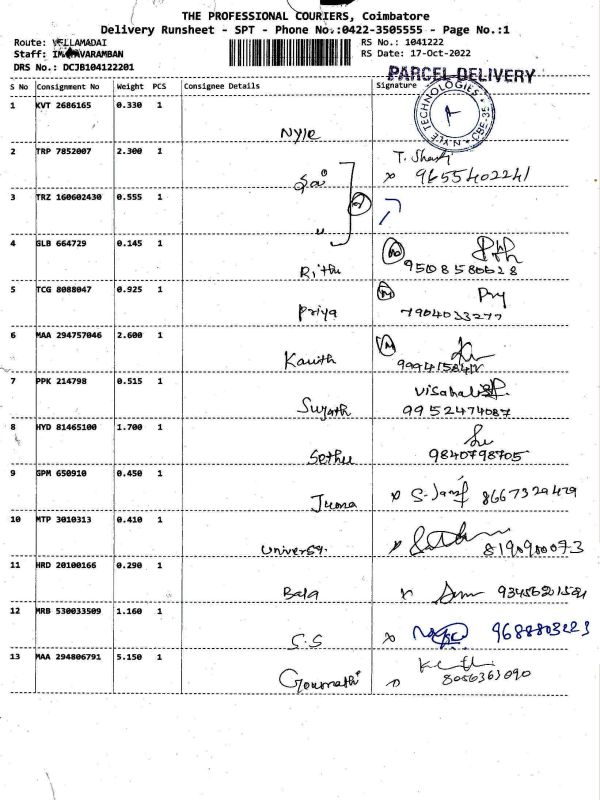 THE PROFESSIONAL COURIERS, Coimbatore
Delivery Runsheet - SPT - Phone No.:0422-3505555 - Page No.:1
Route: VELLAMADAI
RS No.: 1041222
Staff:
RS Date: 17-Oct-2022
DRS No.: DCJB104122201
PARCEL DELIVERY
S No Consignment No Weight PCS Consignee Details Signature
NYLE TECHNOLOGIES
1 KVT 2686165 0.330 1
Nyle
2 TRP 7852007 2.300 1
T. 9655402241
3 TRZ 160602430 0.555 1
4 GLB 664729 0.145 1
Rithu 9508580628
5 TCG 8088047 0.925 1
Priya 7904033277
6 MAA 294757046 2.600 1
Kavith
7 PPK 214798 0.515 1
9952474087
8 HYD 81465100 1.700 1
Sethu 9840798705
9 GPM 650910 0.450 1
Juma 8667329479
10 MTP 3010313 0.410 1
11 HRD 20100166 0.290 1
Bala
12 MRB 530033509 1.160 1
S.S
13 MAA 294806791 5.150 1
Gowmathi 8056363090